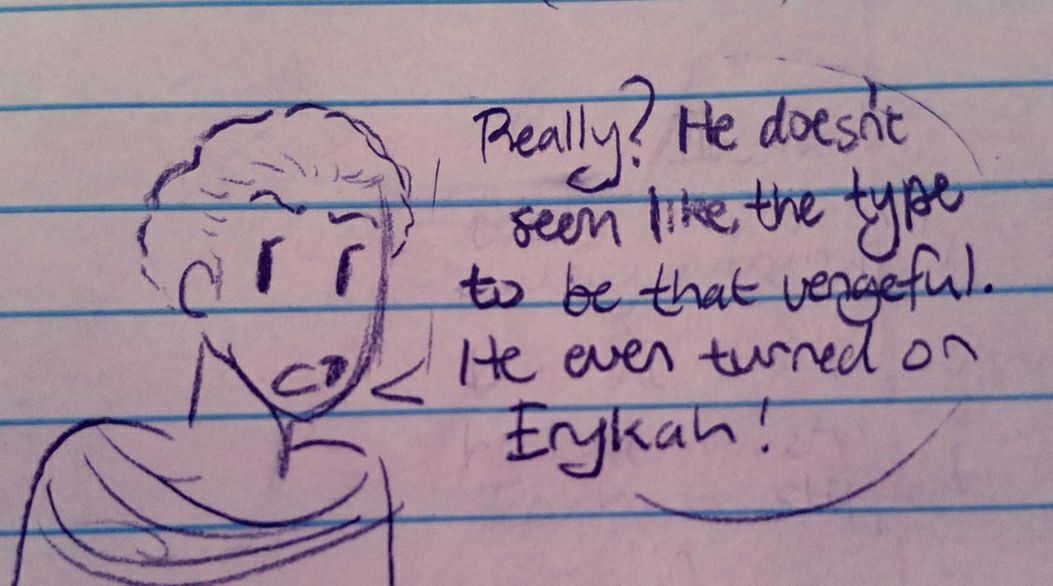 Really? He doesn't
seem like the type
to be that vengeful.
He even turned on
Erykah!